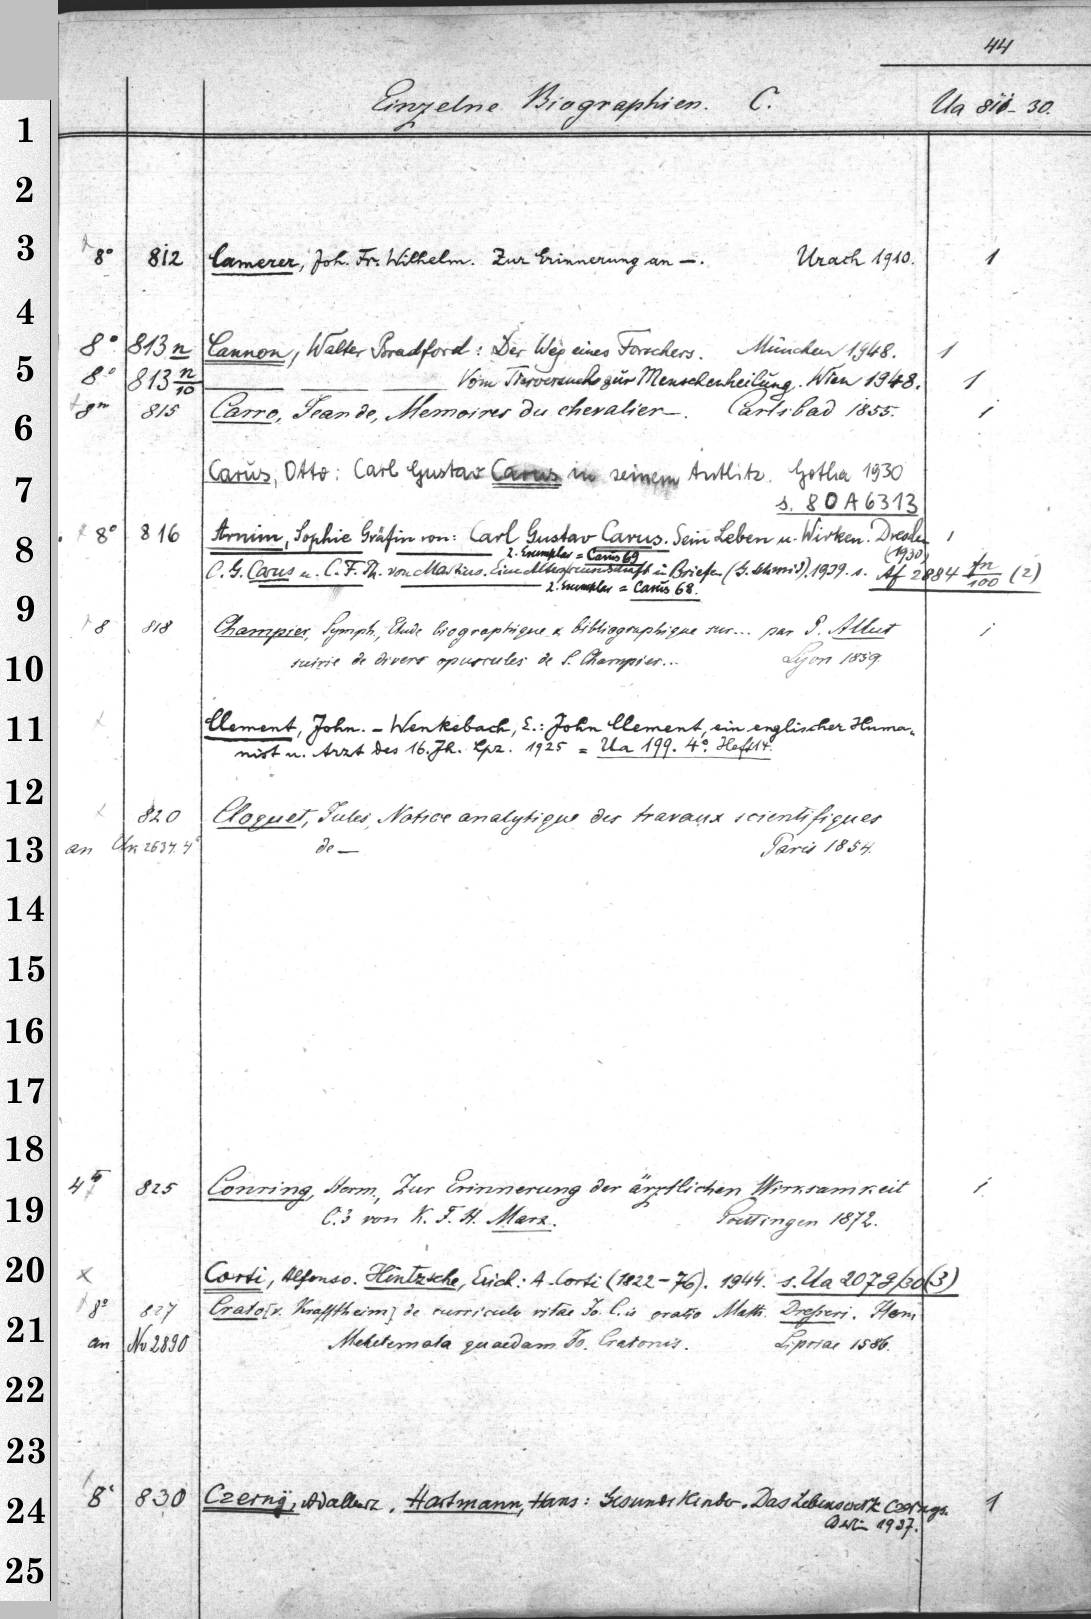 44
Einzelne Biographien. C. Ua 811-30.
1
2
3 8° 812 Camerer, Joh. Fr. Wilhelm. Zur Erinnerung an —. Urach 1910. 1
4
8° 813 n Cannon, Walter Bradford: Der Weg eines Forschers. München 1948. 1
5 8° 813 n/10 — — — Vom Tierversuch zur Menschenheilung. Wien 1948. 1
8m 815 Carro, Jean de, Memoires du chevalier —. Carlsbad 1855. 1
6
7 Carus, Otto: Carl Gustav Carus in seinem Antlitz. Gotha 1930
s. 80 A 6313
8 8° 816 Arnim, Sophie Gräfin von: Carl Gustav Carus. Sein Leben u. Wirken. Dresden 1
2. Exemplar = Carus 69 (1930)
C. G. Carus u. C. F. Ph. von Martius. Eine Altersfreundschaft in Briefen (G. Schmid). 1939. s. Af 2884 fn/100 (2)
2. Exemplar = Carus 68.
9 8 818 Champier, Symph., Etude biographique & bibliographique sur... par P. Allut 1
10 suivie de divers opuscules de S. Champier... Lyon 1859.
11 Clement, John. – Wenkebach, E.: John Clement, ein englischer Huma-
nist u. Arzt des 16. Jh. Lpz. 1925 = Ua 199. 4°. Heft 14.
12 820 Cloquet, Jules, Notice analytique des travaux scientifiques
13 an 2637. 4° de — Paris 1854.
14
15
16
17
18
4° 825 Conring, Herm., Zur Erinnerung der ärztlichen Wirksamkeit 1
19 C.s von K. F. H. Marx. Goettingen 1872.
20 x Corti, Alfonso. Hintzsche, Erich: A. Corti (1822–76). 1944. s. Ua 207 g/30 (3)
8° 827 Crato [v. Krafftheim] de curriculo vitae Jo. C.is oratio Matth. Dresseri. Item
21 an No 2890 quaedam Jo. Cratonis. Lipsiae 1586.
22
23
24 8° 830 Czerny, Adalbert. Hartmann, Hans: Gesunde Kinder. Das Lebenswerk Czernys. 1
Berlin 1937.
25